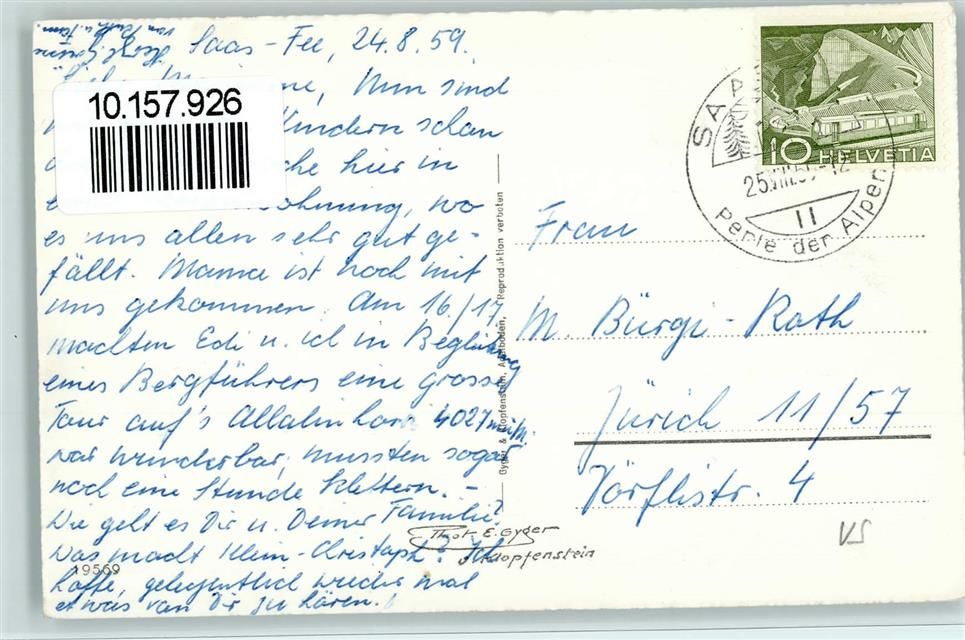 Herzl. Grüsse
von Ruth u. Fam.
Saas-Fee, 24.8.59.
10.157.926
Nun sind
Kindern schon
hier in
wo
es uns allen sehr gut ge-
fällt. Mama ist noch mit
uns gekommen. Am 16./17.
machten Edi u. ich in Begleitung
eines Bergführers eine grosse
Tour auf's Allalinhorn 4027 m ü/M.
war wunderbar, mussten sogar
noch eine Stunde klettern. -
Wie geht es Dir u. Deiner Familie?
Was macht Klein-Christoph? Ich
hoffe, gelegentlich wieder mal
etwas von Dir zu hören.
19569
Gyger & Klopfenstein, Adelboden, Reproduktion verboten
Phot. E. Gyger
Klopfenstein
10 HELVETIA
SA
25.VIII.59-12
II
Perle der Alpen
Frau
M. Bürgi-Rath
Zürich 11/57
Dörflistr. 4
VS